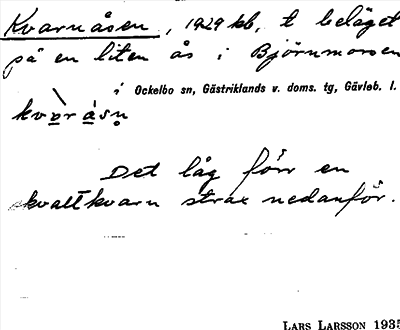 Kvarnåsen, 1929 kb, t beläget
på en liten ås i Björnmoren
Ockelbo sn, Gästriklands v. doms. tg, Gävleb. l.
Det låg förr en
skvaltkvarn strax nedanför.
LARS LARSSON 1935